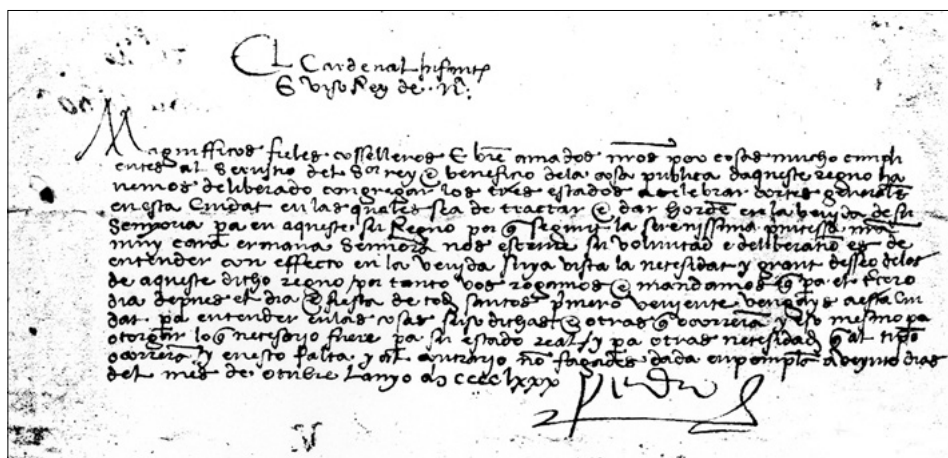 El Cardenal Infante
E Viso Rey de Na.
Magnifficos fieles cosselleros E bien amados nros por cosas mucho cumpli
entes al servicio del Sor rey e beneficio dela cosa publica daqueste regno ha
vemos deliberado congregar los tres estados a celebrar cortes generales
en esta Ciudat en las quales sea de tractar e dar horden en la venida de su
Senyoria pa en aqueste su Regno por q segunt la serenissima princessa
muy cara ermana Senyora nos escrive su voluntad e deliberatio es de
entender con effecto en la venida suya vista la necesidat y grant desseo delos
de aqueste dicho regno / por tanto vos rogamos e mandamos q pa el tcero
dia depues el dia e fiesta de todos santos pmero veniente vengays a esta Ciu
dat pa entender en las cosas suso dichas e otras q ocorreran y eso mesmo pa
otorgar lo q necesario fuere pa su estado real y pa otras necesidades q al tiempo
ocorreran y en esto falta y al contrario no fagades dada en pomplona a dias
del mes de otubre lanyo mil cccclxxx